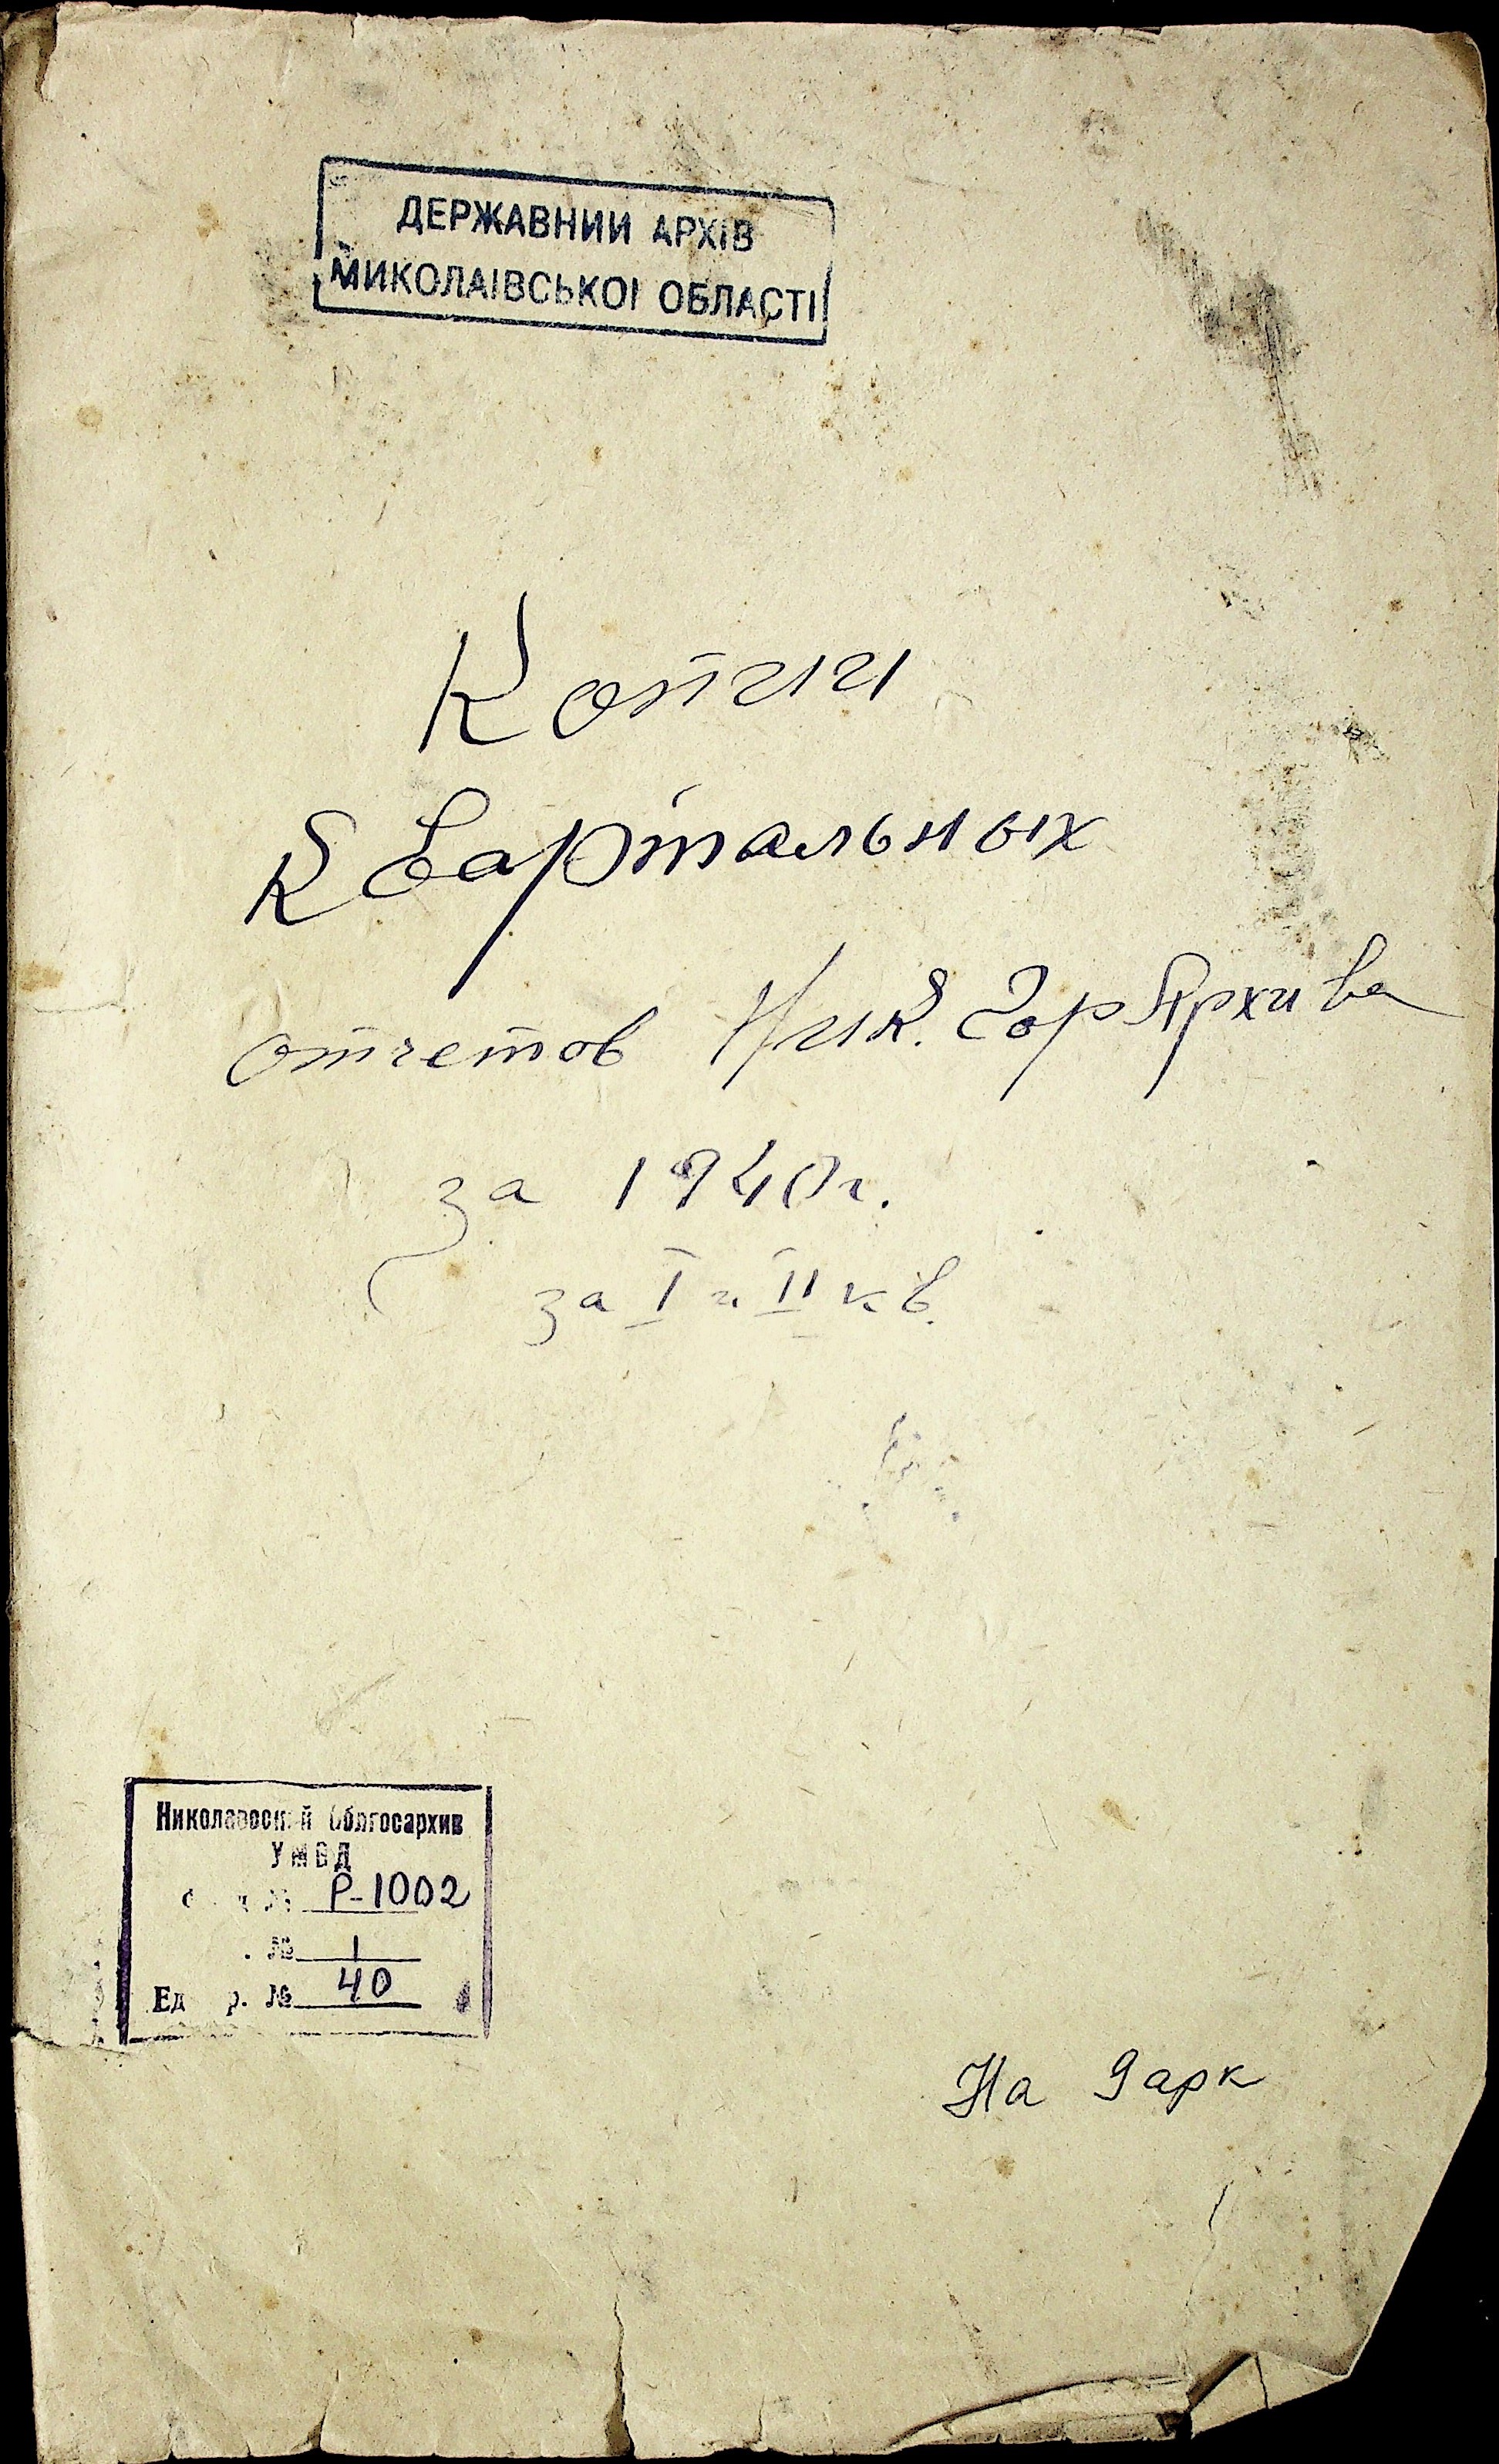 ДЕРЖАВНИЙ АРХІВ
МИКОЛАЇВСЬКОЇ ОБЛАСТІ
Копии
Квартальных
отчетов Ник. ГорАрхива
за 1940г.
за I и II кв.
Николаевский Облгосархив
УМВД
№ Р-1002
№ 1
Ед р. № 40
На 9 арк